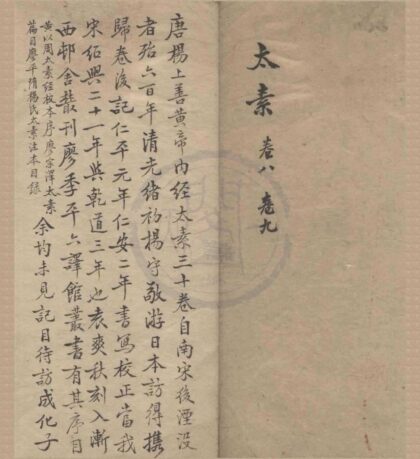 太素 卷八 卷九
唐楊上善黃帝內經太素三十卷自南宋後湮沒
者殆六百年清光緒初楊守敬游日本訪得攜
歸卷後記仁平元年仁安二年書寫校正當我
宋紹興二十一年與乾道三年也袁爽秋刻入漸
西邨舍叢刊廖季平六譯館叢書有其序目
黃以周太素經校本序廖宗澤太素
篇目廖平隋楊氏太素注本目錄
余均未見記目待訪成化子